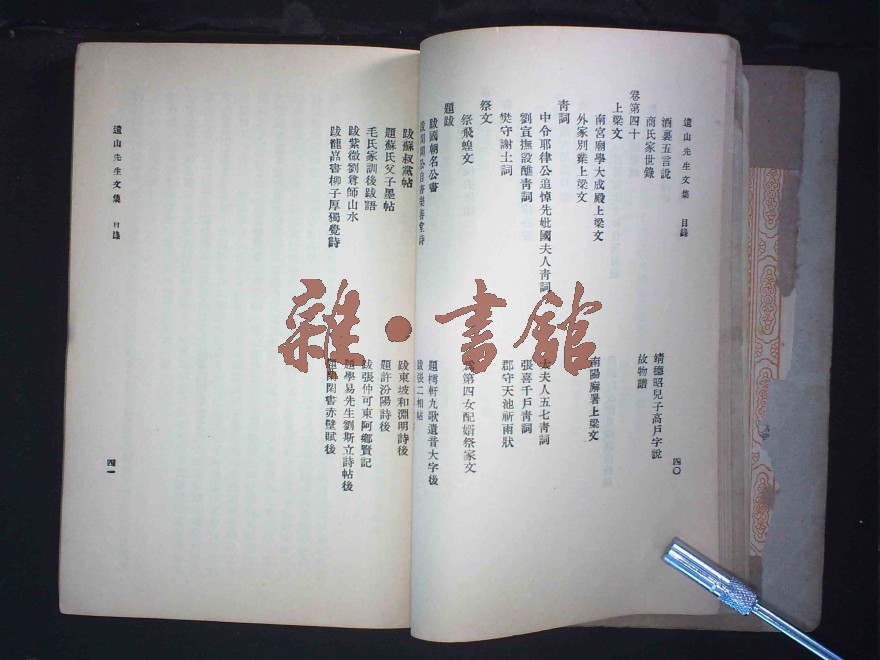 遺山先生文集 目錄
四〇
酒裏五言說
靖德昭兒子高戶字說
商氏家世錄
故物譜
卷第四十
上梁文
南宮廟學大成殿上梁文
南陽廨署上梁文
外家別業上梁文
青詞
中令耶律公追悼先妣國夫人青詞
太夫人五七青詞
劉宣撫設醮青詞
張喜千戶青詞
樊守謝土詞
郡守天池祈雨狀
祭文
祭飛蝗文
為第四女配婿祭家文
題跋
跋國朝名公書
題樗軒九歌遺音大字後
跋閑閑公自書樂善堂詩
跋張二相帖
跋蘇叔黨帖
跋東坡和淵明詩後
題蘇氏父子墨帖
題許汾陽詩後
毛氏家訓後跋語
跋張仲可東阿鄉賢記
跋紫微劉尊師山水
題學易先生劉斯立詩帖後
跋龍巖書柳子厚獨覺詩
題閑閑書赤壁賦後
遺山先生文集 目錄
四一
雜·書館